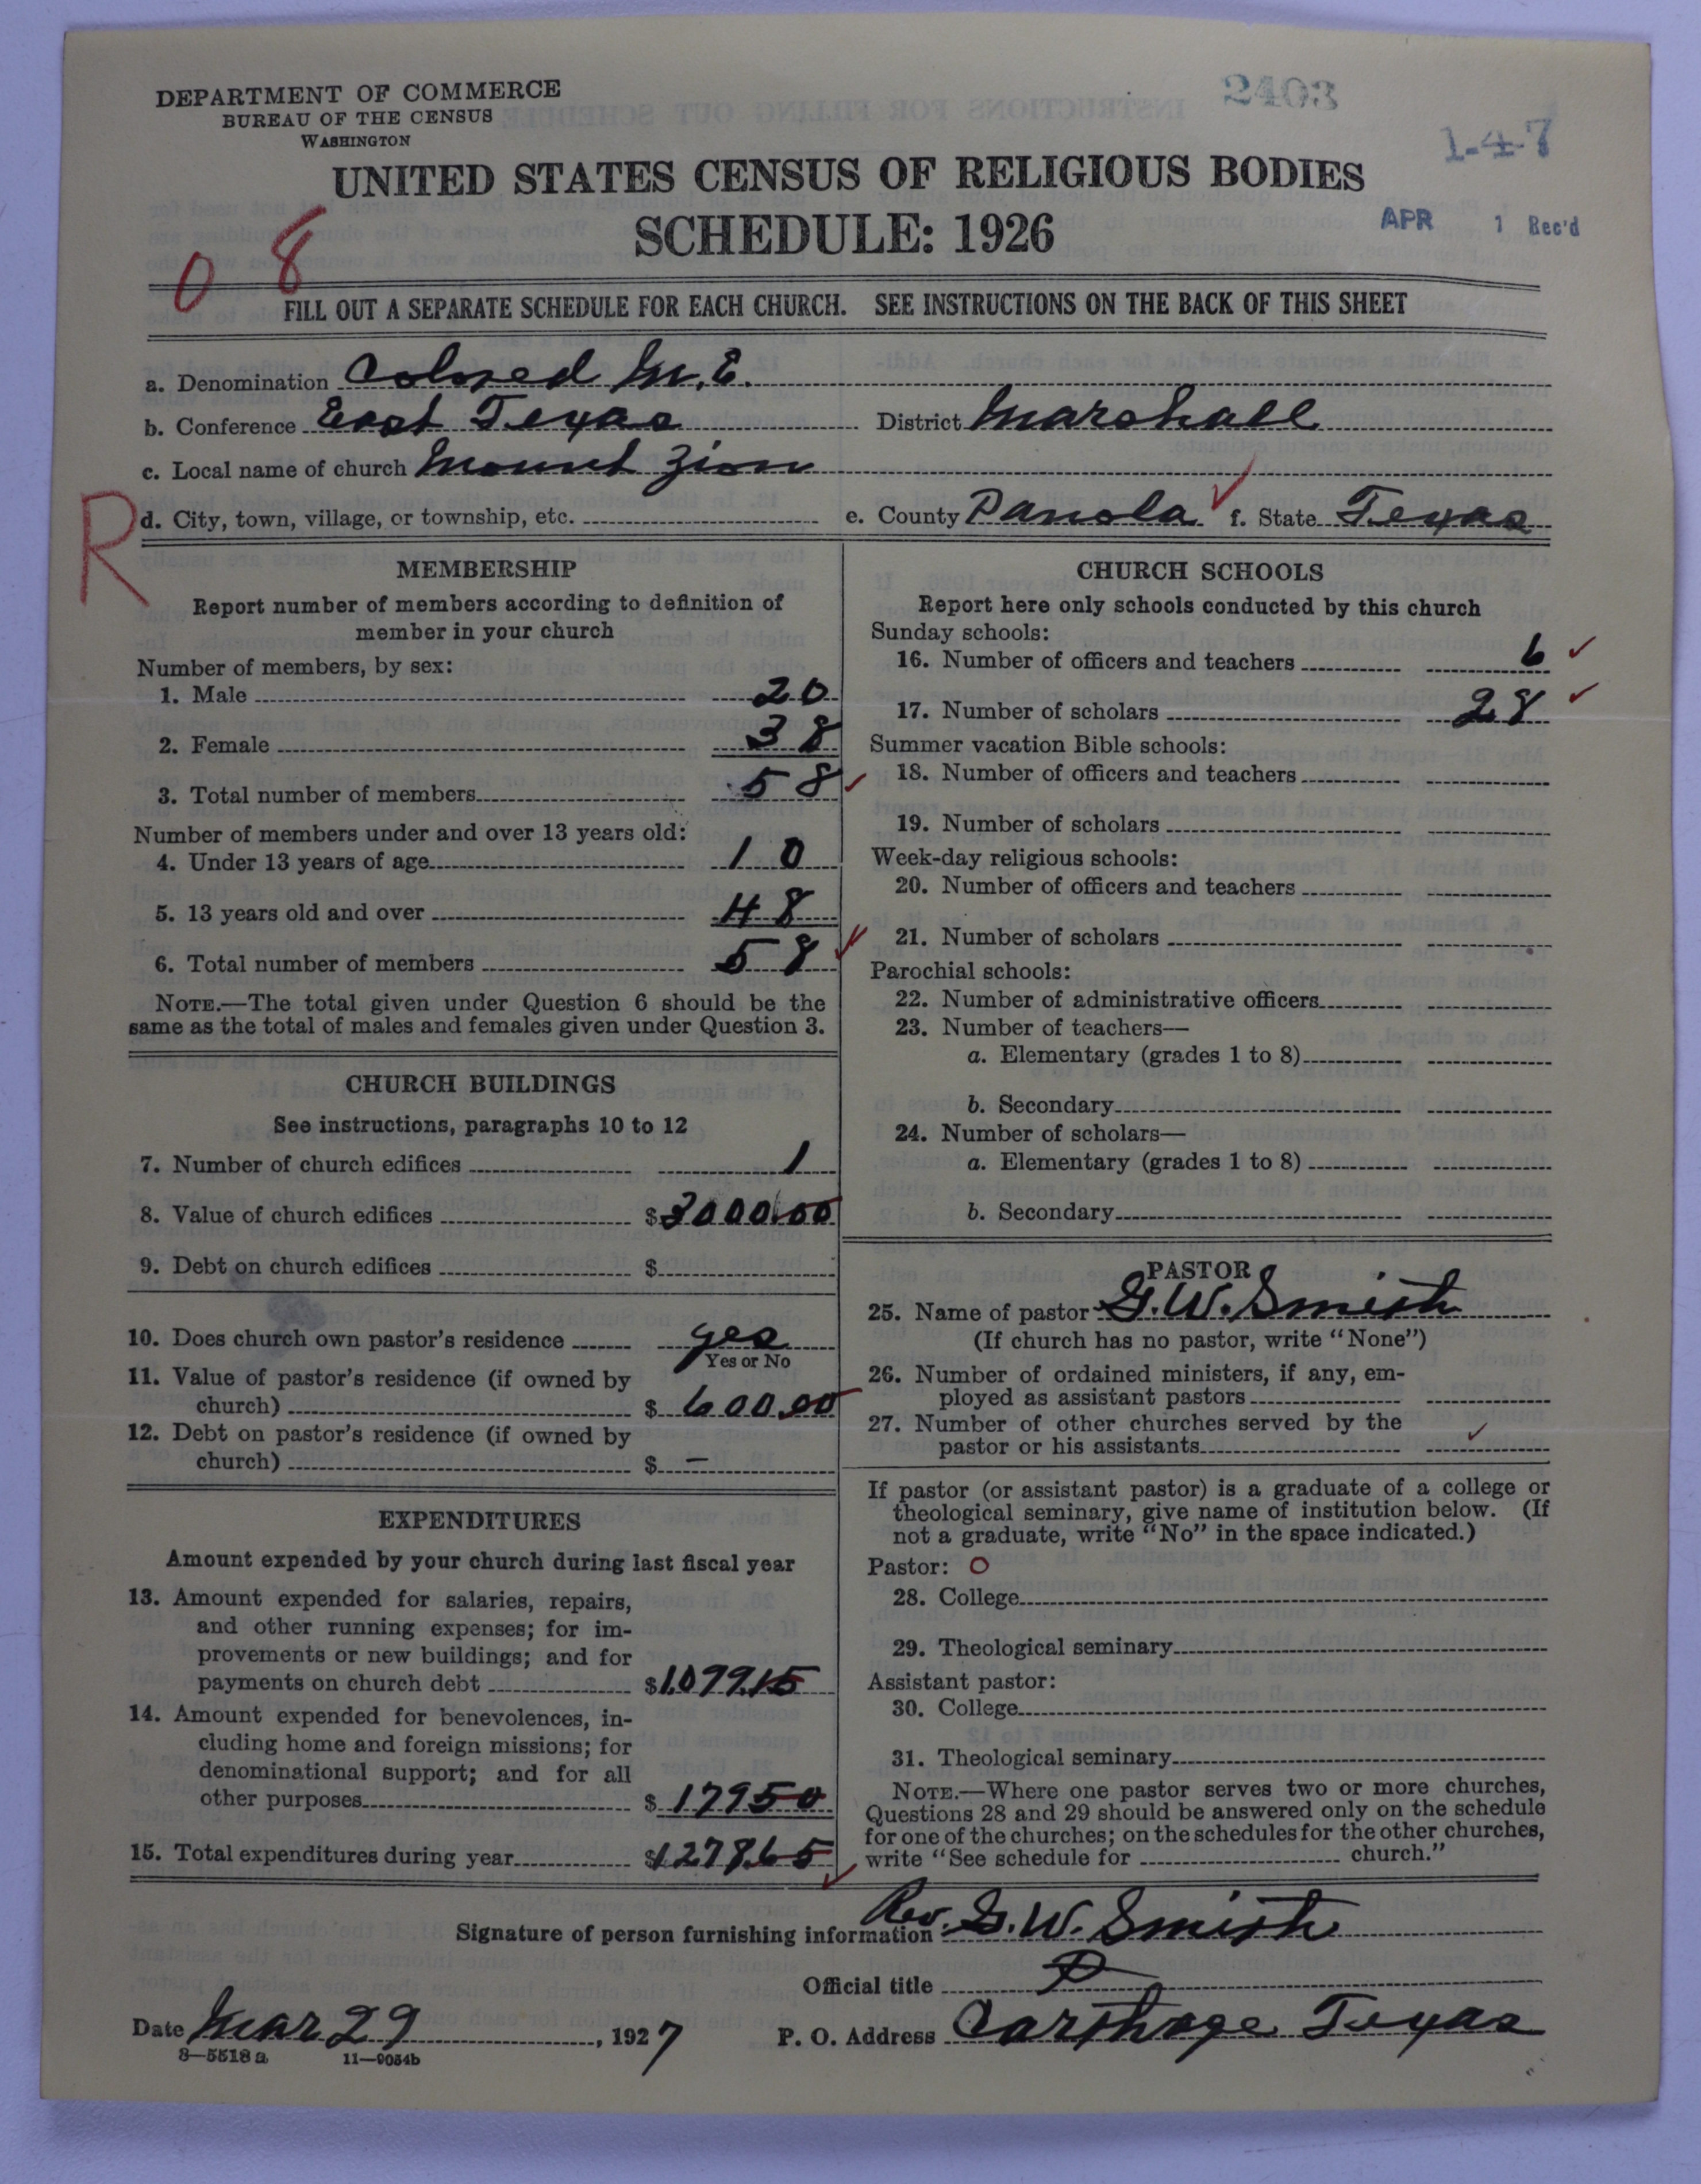 DEPARTMENT OF COMMERCE
BUREAU OF THE CENSUS
WASHINGTON
2403
1-4-7
UNITED STATES CENSUS OF RELIGIOUS BODIES
SCHEDULE: 1926
APR 1 Rec'd
0 8
FILL OUT A SEPARATE SCHEDULE FOR EACH CHURCH. SEE INSTRUCTIONS ON THE BACK OF THIS SHEET
a. Denomination Colored M.E.
b. Conference East Texas District Marshall
c. Local name of church Mount Zion
R
d. City, town, village, or township, etc. e. County Panola ✓ f. State Texas
MEMBERSHIP
Report number of members according to definition of
member in your church
Number of members, by sex:
1. Male 20
2. Female 38
3. Total number of members 58 ✓
Number of members under and over 13 years old:
4. Under 13 years of age 10
5. 13 years old and over 48
6. Total number of members 58 ✓
NOTE.—The total given under Question 6 should be the
same as the total of males and females given under Question 3.
CHURCH BUILDINGS
See instructions, paragraphs 10 to 12
7. Number of church edifices 1
8. Value of church edifices $ 000.00
9. Debt on church edifices $
10. Does church own pastor's residence yes
Yes or No
11. Value of pastor's residence (if owned by
church) $ 600.00
12. Debt on pastor's residence (if owned by
church) $ –
EXPENDITURES
Amount expended by your church during last fiscal year
13. Amount expended for salaries, repairs,
and other running expenses; for im-
provements or new buildings; and for
payments on church debt $1,099.15
14. Amount expended for benevolences, in-
cluding home and foreign missions; for
denominational support; and for all
other purposes $ 179 50
15. Total expenditures during year $1278.65 ✓
CHURCH SCHOOLS
Report here only schools conducted by this church
Sunday schools:
16. Number of officers and teachers 6 ✓
17. Number of scholars 28 ✓
Summer vacation Bible schools:
18. Number of officers and teachers
19. Number of scholars
Week-day religious schools:
20. Number of officers and teachers
21. Number of scholars
Parochial schools:
22. Number of administrative officers
23. Number of teachers—
a. Elementary (grades 1 to 8)
b. Secondary
24. Number of scholars—
a. Elementary (grades 1 to 8)
b. Secondary
PASTOR
25. Name of pastor G.W. Smith
(If church has no pastor, write "None")
26. Number of ordained ministers, if any, em-
ployed as assistant pastors
27. Number of other churches served by the
pastor or his assistants ✓
If pastor (or assistant pastor) is a graduate of a college or
theological seminary, give name of institution below. (If
not a graduate, write "No" in the space indicated.)
Pastor: O
28. College
29. Theological seminary
Assistant pastor:
30. College
31. Theological seminary
NOTE.—Where one pastor serves two or more churches,
Questions 28 and 29 should be answered only on the schedule
for one of the churches; on the schedules for the other churches,
write "See schedule for church."
Signature of person furnishing information Rev. G.W. Smith
Official title P
Date Mar 29, 1927 P. O. Address Carthage Texas
8—5518a 11—9054b